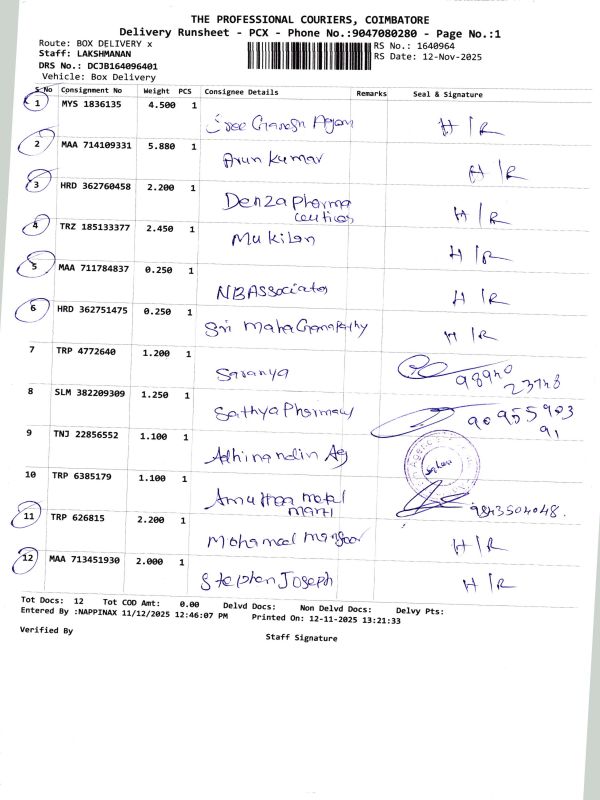 THE PROFESSIONAL COURIERS, COIMBATORE
Delivery Runsheet - PCX - Phone No.:9047080280 - Page No.:1
Route: BOX DELIVERY x
RS No.: 1640964
Staff: LAKSHMANAN
RS Date: 12-Nov-2025
DRS No.: DCJB164096401
Vehicle: Box Delivery
S.No Consignment No Weight PCS Consignee Details Remarks Seal & Signature
1 MYS 1836135 4.500 1
Sree Ganesh Agen H/R
2 MAA 714109331 5.880 1
Arun Kumar H/R
3 HRD 362760458 2.200 1
Denza Pharma
ceuticas H/R
4 TRZ 185133377 2.450 1
Mukilan H/R
5 MAA 711784837 0.250 1
NBAssociates H/R
6 HRD 362751475 0.250 1
Sri Maha Ganapathy H/R
7 TRP 4772640 1.200 1
Saranya 98940
23748
8 SLM 382209309 1.250 1
Sathya Pharmacy 90955903
91
9 TNJ 22856552 1.100 1
Adhinandin Ag
10 TRP 6385179 1.100 1
Amuthaa metal
marti 9843504048.
11 TRP 626815 2.200 1
Mohamed mansoor H/R
12 MAA 713451930 2.000 1
Stephen Joseph H/R
Tot Docs: 12 Tot COD Amt: 0.00 Delvd Docs: Non Delvd Docs: Delvy Pts:
Entered By :NAPPINAX 11/12/2025 12:46:07 PM Printed On: 12-11-2025 13:21:33
Verified By
Staff Signature